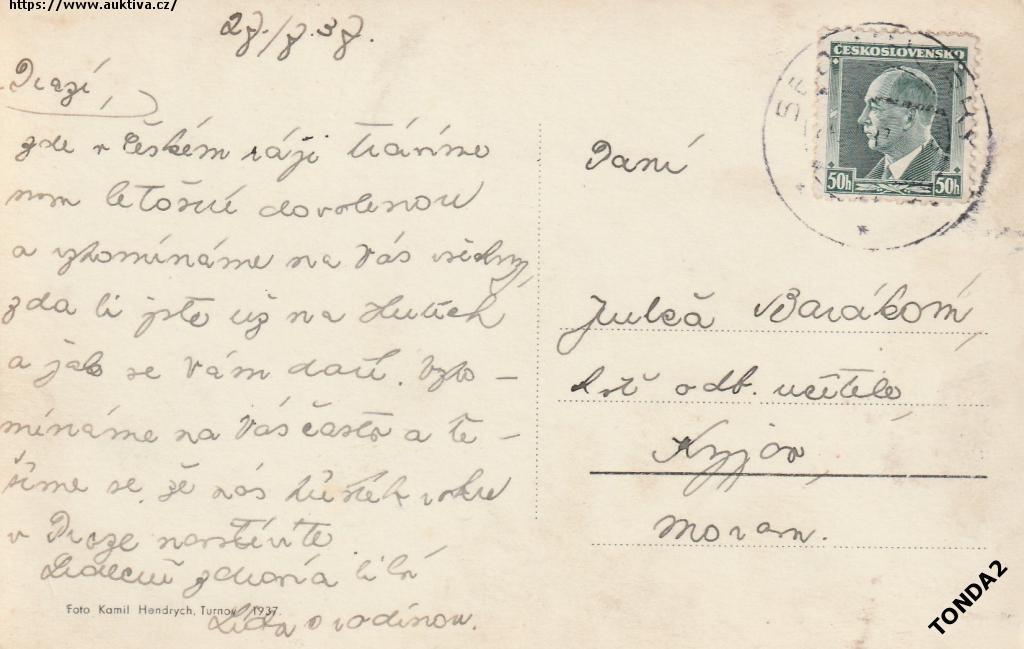 https://www.auktiva.cz/
27./7.37.
Drazí,
zde v Českém ráji trávíme
svou letošní dovolenou
a vzpomínáme na Vás všechny,
zda li jste už na Hutích
a jak se Vám daří. Vzpo-
mínáme na Vás často a tě-
šíme se, že nás
v Praze navštívíte
Srdečně zdraví a líbá
Lída s rodinou.
Foto Kamil Hendrych, Turnov 1937.
ČESKOSLOVENSKO
50h 50h
Paní
Julča Baráková,
odb. učitele
Kyjov,
Morava.
TONDA2